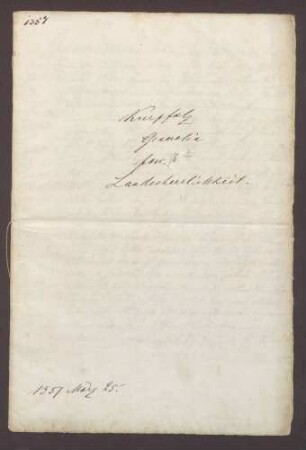 1357
Kurpfalz
Generalia
Landesherrlichkeit.
1357 März 25.